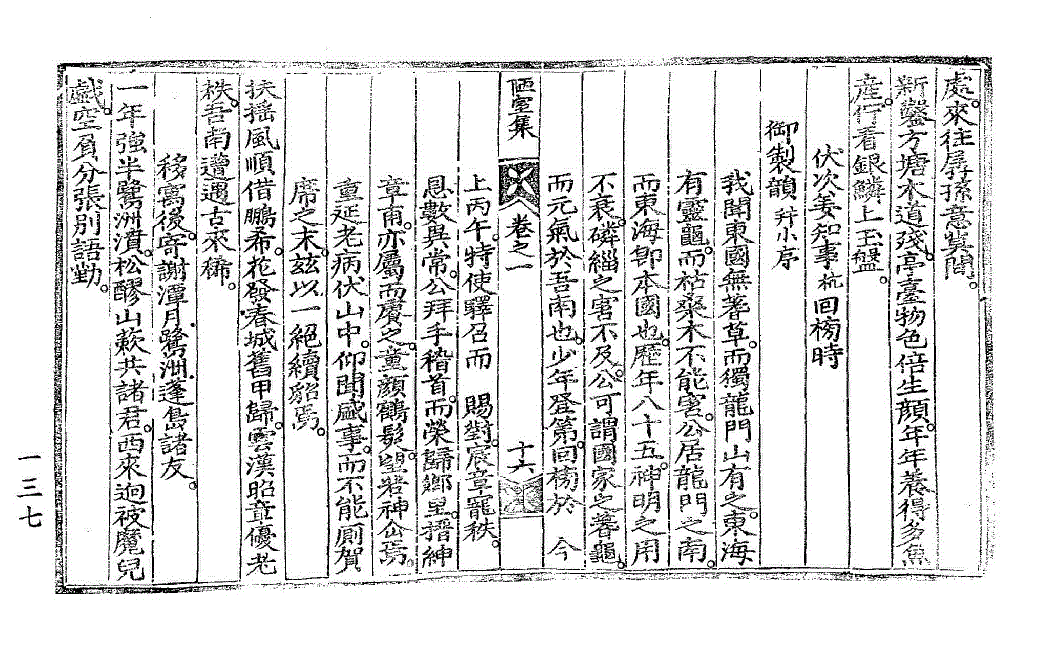 處。來往羣孫意莫閒。
新鑿方塘水道殘。亭臺物色倍生顔。年年養得多魚
産。佇看銀鱗上玉盤。
伏次姜知事杭回榜時
御製韻 幷小序
我聞東國無蓍草。而獨龍門山有之。東海
有靈龜。而枯桑木不能害。公居龍門之南。
而東海卽本國也。歷年八十五。神明之用
不衰。磷緇之害不及。公可謂國家之蓍龜。
而元氣於吾南也。少年登第。回榜於 今
陋室集
卷之一
十六
上丙午。特使驛召而 賜對。宸章寵秩。
恩數異常。公拜手稽首。而榮歸鄕里。搢紳
章甫。亦屬而賡之。童顔鶴髮。望若神仙焉。
童延老病伏山中。仰聞盛事。而不能厠賀
席之末。玆以一絕續貂焉。
扶搖風順借鵬希。花發春城舊甲歸。雲漢昭章優老
秩。吾南遭遇古來稀。
移寓後。寄謝潭月鷺洲蓬島諸友。
一年強半鷺洲濆。松醪山蔌共諸君。西來迥被魔兒
戱。空負分張別語勤。
一三七